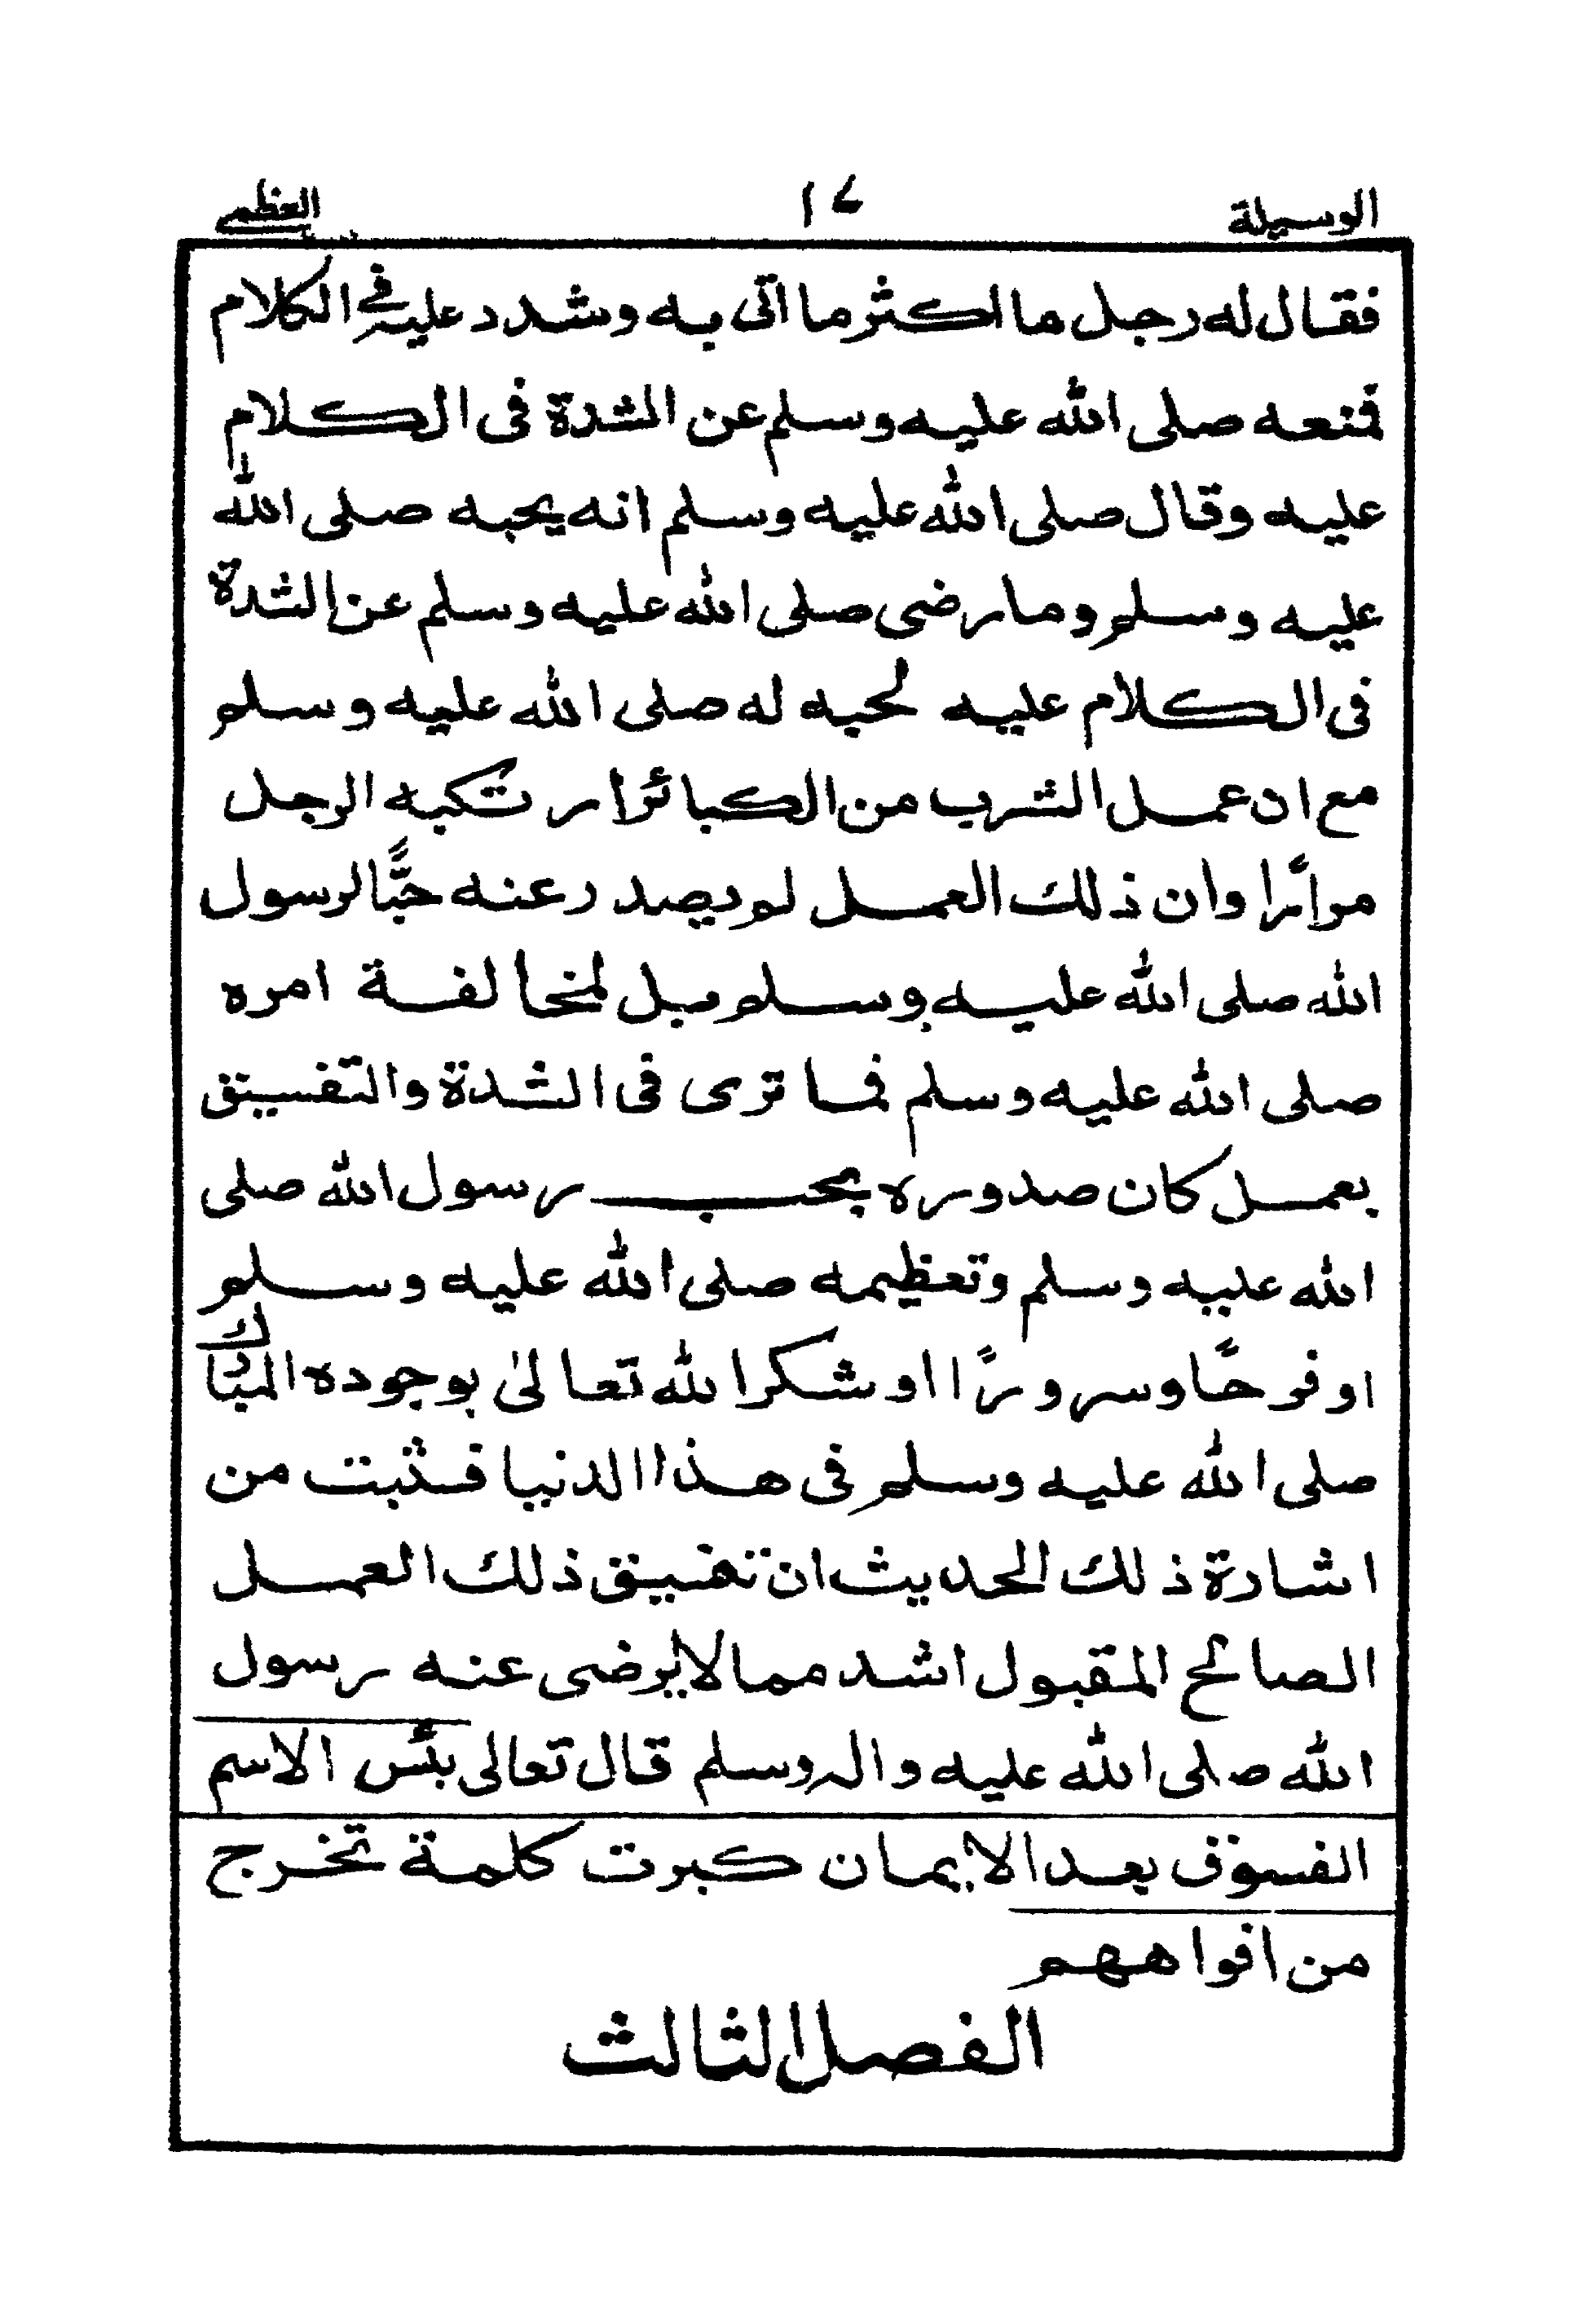 الوسيلة ١٧ العظمى
فقال له رجل ما اكثر ما اتى به وشدد عليه فى الكلام
فمنعه صلى الله عليه وسلم عن الشدة فى الكلام
عليه وقال صلى الله عليه وسلم انه يحبه صلى الله
عليه وسلم وما رضى صلى الله عليه وسلم عن الشدة
فى الكلام عليه لحبه له صلى الله عليه وسلم
مع ان عمل الشرب من الكبائر ارتكبه الرجل
مرائرا وان ذلك العمل لم يصدر عنه حبًّا لرسول
الله صلى الله عليه وسلم بل لمخالفة امره
صلى الله عليه وسلم فما ترى فى الشدة والتفسيق
بعمل كان صدوره بحب رسول الله صلى
الله عليه وسلم وتعظيمه صلى الله عليه وسلم
او فرحًا وسرورًا او شكرا لله تعالىٰ بوجوده المبارك
صلى الله عليه وسلم فى هذا الدنيا فثبت من
اشارة ذلك الحديث ان تفسيق ذلك العمل
الصالح المقبول اشد مما لا يرضى عنه رسول
الله صلى الله عليه واله وسلم قال تعالى بئس الاسم
الفسوق بعد الايمان كبرت كلمة تخرج
من افواههم
الفصل الثالث